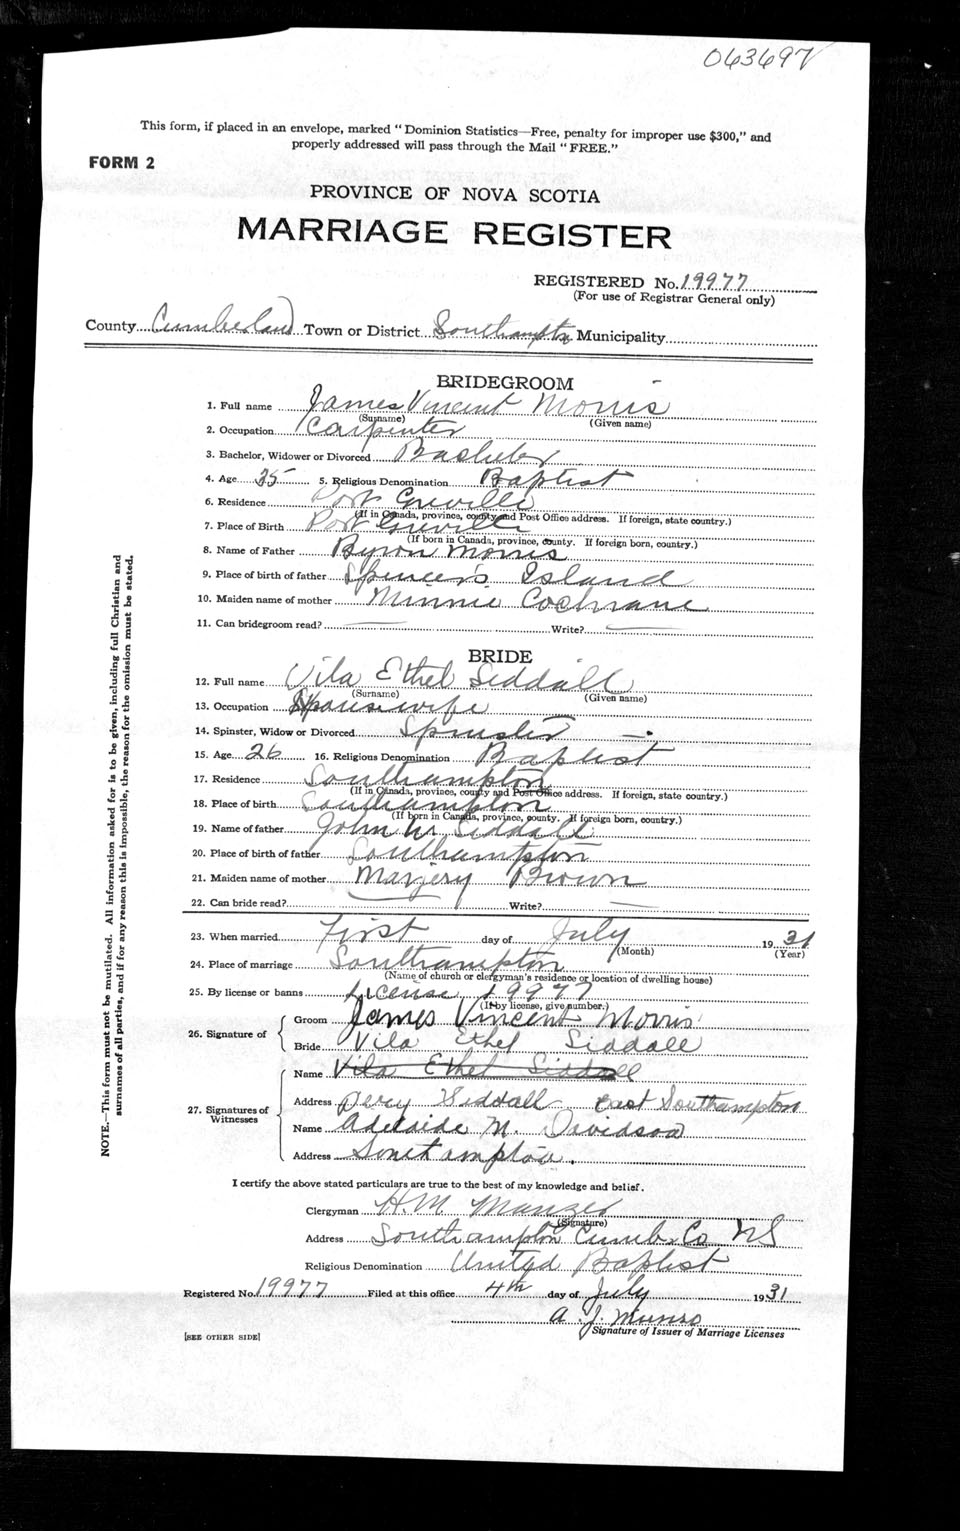 063697
This form, if placed in an envelope, marked "Dominion Statistics—Free, penalty for improper use $300," and
properly addressed will pass through the Mail "FREE."
FORM 2
PROVINCE OF NOVA SCOTIA
MARRIAGE REGISTER
REGISTERED No. 19977
(For use of Registrar General only)
County Cumberland Town or District Southampton Municipality
BRIDEGROOM
1. Full name James Vincent Morris
(Surname) (Given name)
2. Occupation Carpenter
3. Bachelor, Widower or Divorced Bachelor
4. Age 25 5. Religious Denomination Baptist
6. Residence Port Greville
(If in Canada, province, county and Post Office address. If foreign, state country.)
7. Place of Birth Port Greville
(If born in Canada, province, county. If foreign born, country.)
8. Name of Father Byron Morris
9. Place of birth of father Spencer's Island
10. Maiden name of mother Minnie Cochrane
11. Can bridegroom read? — Write? —
BRIDE
12. Full name Vila Ethel Siddall
(Surname) (Given name)
13. Occupation Housewife
14. Spinster, Widow or Divorced Spinster
15. Age 26 16. Religious Denomination Baptist
17. Residence Southampton
(If in Canada, province, county and Post Office address. If foreign, state country.)
18. Place of birth Southampton
(If born in Canada, province, county. If foreign born, country.)
19. Name of father John W Siddall
20. Place of birth of father Southampton
21. Maiden name of mother Margery Brown
22. Can bride read? — Write? —
23. When married First day of July 1931
(Month) (Year)
24. Place of marriage Southampton
(Name of church or clergyman's residence or location of dwelling house)
25. By license or banns License 19977
(If by license, give number.)
26. Signature of Groom James Vincent Morris
Bride Vila Ethel Siddall
27. Signatures of Witnesses Name Vila Ethel Siddall
Address Percy Siddall East Southampton
Name Adelaide M. Davidson
Address Southampton.
I certify the above stated particulars are true to the best of my knowledge and belief.
Clergyman H. M. Manzer
(Signature)
Address Southampton Cumb. Co NS
Religious Denomination United Baptist
Registered No. 19977 Filed at this office 4th day of July 1931
A. J. Munro
Signature of Issuer of Marriage Licenses
[SEE OTHER SIDE]
NOTE.—This form must not be mutilated. All information asked for is to be given, including full Christian and
surnames of all parties, and if for any reason this is impossible, the reason for the omission must be stated.